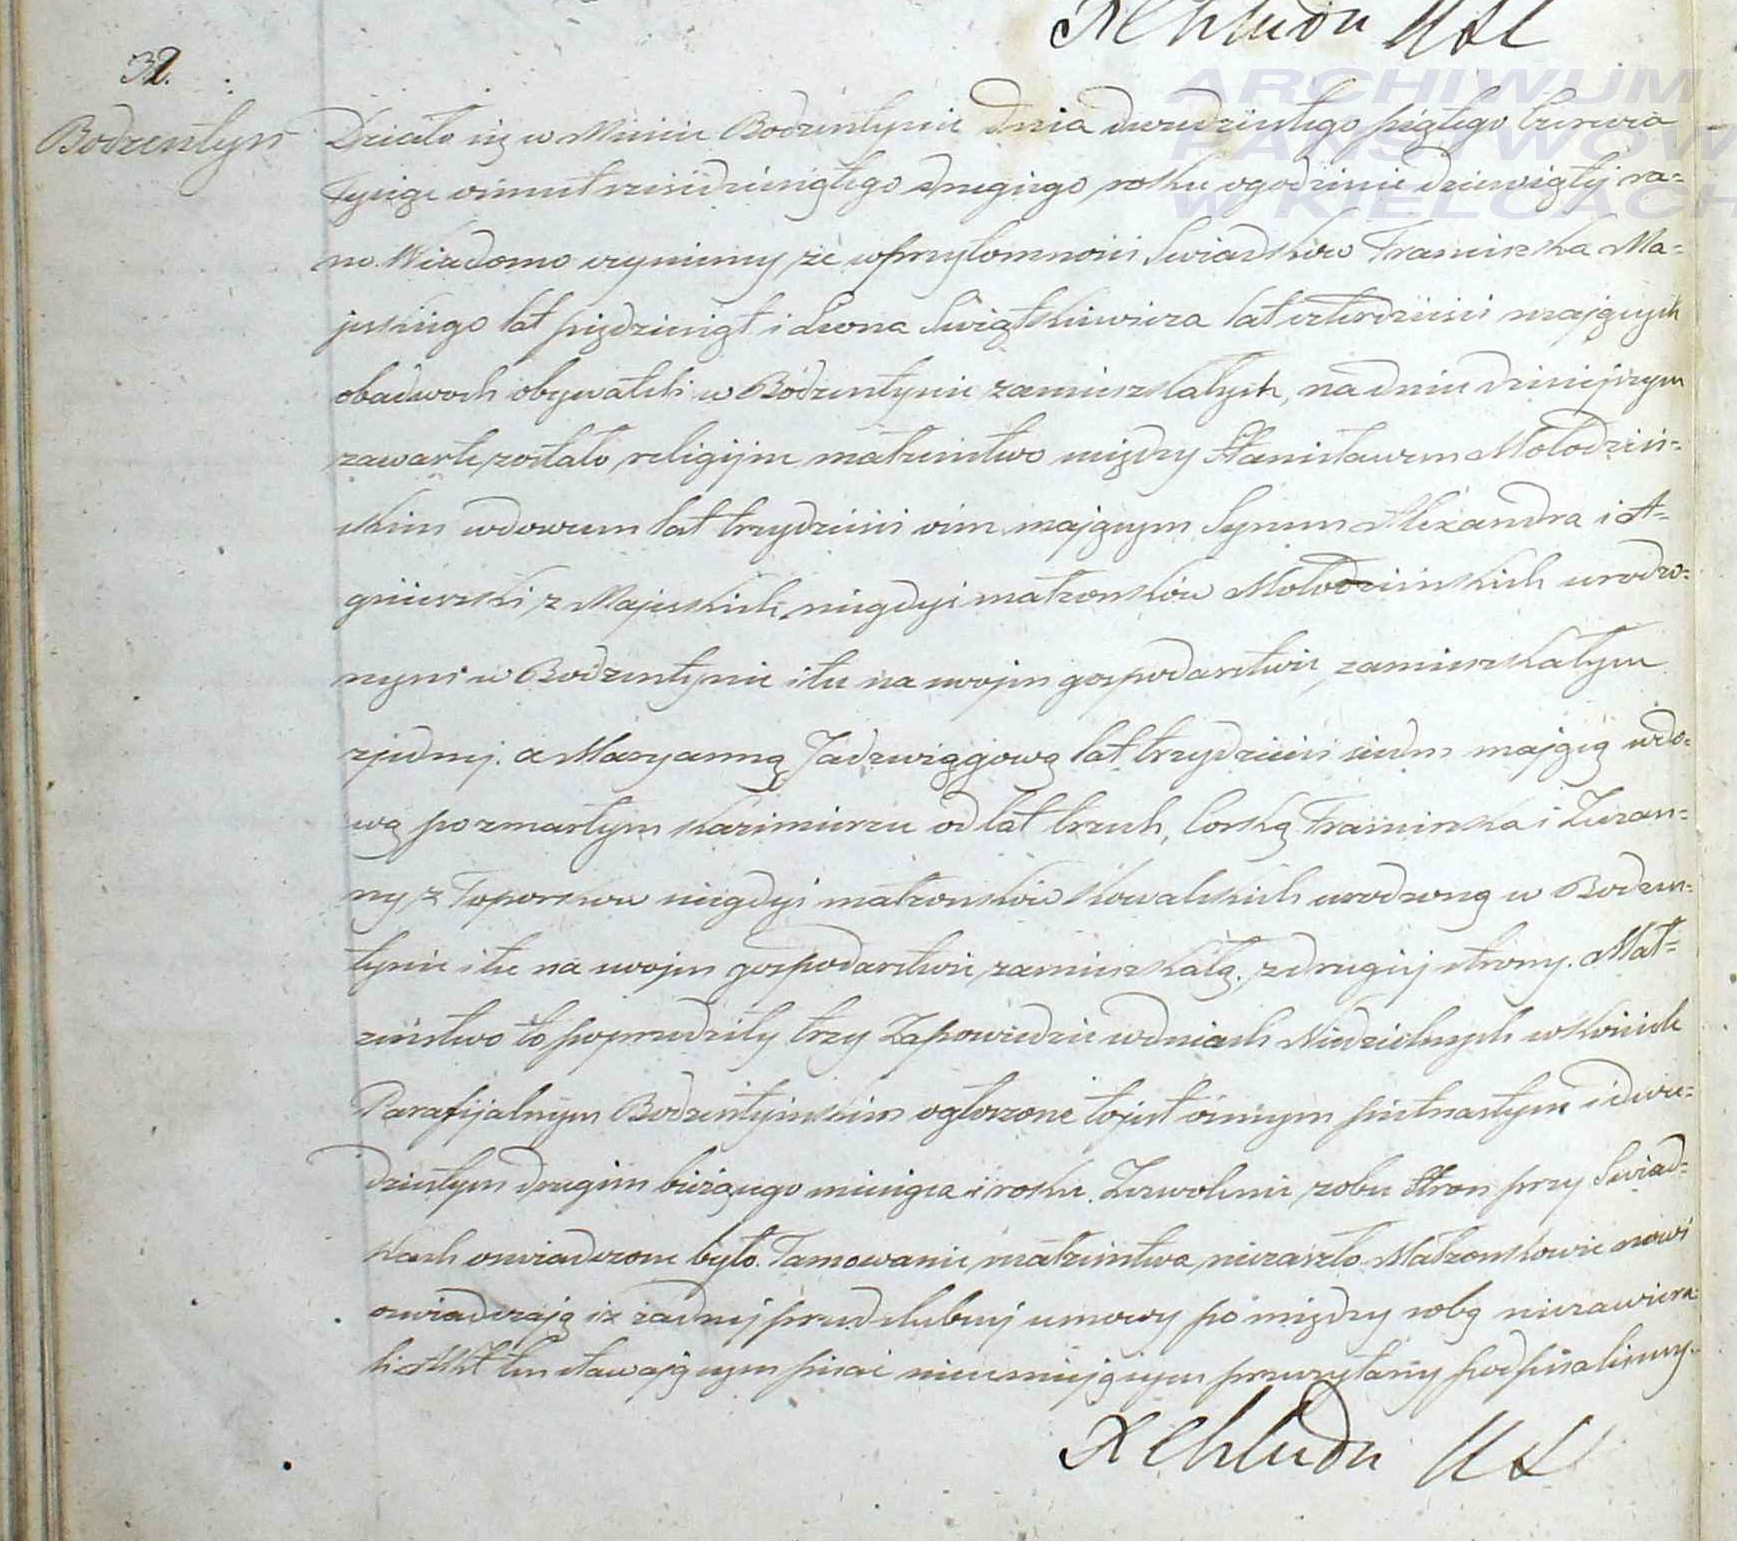 X Chludu USC
32.
Bodzentyn
ARCHIWUM
PAŃSTWOW
W KIELCACH
Działo się w Mieście Bodzentynie dnia dwudziestego piątego Czerwca
Tysiąc ośmset sześćdziesiątego drugiego roku o godzinie dziewiątej ra=
no. Wiadomo czyniemy że w przytomności Swiadków Franciszka Ma=
jeskiego lat pięćdziesiąt i Leona Swiątkiewicza lat czterdzieści mających
obadwoch obywateli w Bodzentynie zamieszkałych, na dniu dzisiejszym
zawarte zostało religijne małżeństwo między Stanisławem Mołodziń=
skim wdowcem lat trzydzieści ośm mającym Synem Alexandra i A=
gnieszki z Majeskich niegdyś małżonków Mołodzińskich urodzo=
nym w Bodzentynie i tu na swojem gospodarstwie zamieszkałym
z jednej. a Maryanną Jadzwiągową lat trzydzieści siedm mającą wdo=
wą po zmarłym Kazimierzu od lat trzech, Corką Franciszka i Zuzan=
ny z Toporskow niegdyś małżonków Kowalskich urodzoną w Bodzen=
tynie i tu na swojem gospodarstwie zamieszkałą. z drugiej strony. Mał=
żeństwo to poprzedziły trzy Zapowiedzie w dniach Niedzielnych w kościele
Parafijalnym Bodzentyńskim ogłoszone to jest ósmym piętnastym i dwu=
dziestym drugim bieżącego miesiąca i roku. Zezwolenie z obu Stron przy Swiad=
kach oswiadczone było. Tamowanie małżeństwa nie zaszło. Małżonkowie nowi
oswiadczają iż żadnej przedślubnej umowy pomiędzy sobą niezawiera=
li Akt ten stawającym pisać nieumiejącym przeczytany podpisaliśmy.
X Chludu USC